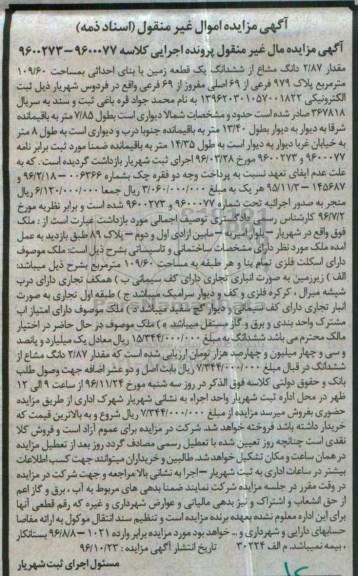 آگهی مزایده اموال غیر منقول (اسناد ذمه)
آگهی مزایده مال غیر منقول پرونده اجرایی کلاسه ۹۶۰۰۰۷۷ – ۹۶۰۰۲۷۳
مقدار ۲/۸۷ دانگ مشاع از ششدانگ یک قطعه زمین با بنای احداثی بمساحت ۱۰۹/۶۰
مترمربع پلاک ۹۷۹ فرعی از ۶۹ اصلی مفروز از ۶۹ فرعی واقع در فردوس شهریار ذیل ثبت
الکترونیکی ۱۳۹۶۲۰۳۰۱۰۵۷۰۰۱۸۲۲ به نام محمد جواد قره باغی ثبت و سند به سریال
۳۶۷۸۱۸ صادر شده است حدود و مشخصات شمالا دیواری است بطول ۷/۸۵ متر به باقیمانده
شرقا به دیوار به دیوار بطول ۱۳/۴۰ متر به باقیمانده جنوبا درب و دیواری است به طول ۸ متر
به خیابان غربا دیوار به دیوار است به طول ۱۴/۳۵ متر به باقیمانده ضمنا مورد ثبت برابر نامه
۹۶۰۰۰۷۷ و ۹۶۰۰۲۷۳ مورخ ۹۶/۰۳/۲۸ اجرای ثبت شهریار بازداشت گردیده است . که به
علت عدم ایفای تعهد نسبت به پرداخت وجه دو فقره چک بشماره ۰۰۶۳۶۶ – ۹۶/۲/۱۸ و
۱۴۵۶۸۷ – ۹۵/۱۱/۳ هر یک به مبلغ ۳/۰۶۰/۰۰۰/۰۰۰ ریال جمعا ۶/۱۲۰/۰۰۰/۰۰۰ ریال
منجر به صدور اجرائیه تحت شماره ۹۶۰۰۰۷۷ و ۹۶۰۰۲۷۳ شده است و برابر نظریه مورخ
۹۶/۷/۲ کارشناس رسمی دادگستری توصیف اجمالی مورد بازداشت عبارت است از : ملک
فوق واقع در شهریار – بلوار امیریه – مابین ازادی اول و دوم – پلاک ۸۹ طبق بازدید به عمل
امده ملک مورد نظر دارای مشخصات ساختمانی و تاسیساتی بشرح ذیل است: ملک موصوف
دارای اسکلت فلزی تمام بنا و هر طبقه به مساحت ۱۰۹/۶۰ مترمربع بشرح ذیل میباشد:
الف ) زیرزمین به صورت انباری تجاری دارای کف سیمانی ب ) همکف تجاری دارای درب
شیشه میرال ، کرکره فلزی و کف و دیوار سرامیک میباشد ج ) طبقه اول تجاری به صورت
انبار تجاری دارای کف سیمانی و دیوار گچ سفید میباشد د ) ملک موصوف دارای امتیاز اب
مشترک واحد بندی و برق و گاز مستقل میباشد ه ) ملک موصوف در حال حاضر در اختیار
مالک محترم می باشد ششدانگ به مبلغ ۱۵/۳۴۴/۰۰۰/۰۰۰ ریال معادل یک میلیارد و پانصد
و سی و چهار میلیون و چهارصد هزار تومان ارزیابی شده است که مقدار ۲/۸۷ دانگ مشاع از
ششدانگ در قبال مبلغ ۷/۳۴۴/۰۰۰/۰۰۰ ریال بابت اصل و دو عشر اضافه جهت وصول طلب
بانک و حقوق دولتی کلاسه فوق الذکر در روز سه شنبه مورخ ۹۶/۱۱/۲۴ از ساعت ۹ الی ۱۲
ظهر در محل اداره ثبت شهریار واحد اجراء به نشانی شهریار شهرک اداری از طریق مزایده
حضوری بفروش میرسد مزایده از مبلغ ۷/۳۴۴/۰۰۰/۰۰۰ ریال شروع و به بالاترین قیمت که
خریدار داشته باشد فروخته خواهد شد. شرکت در مزایده برای عموم آزاد است و فروش کلا
نقدی است چنانچه روز تعیین شده با تعطیل رسمی مصادف گردد روز بعد از تعطیل مزایده
در همان ساعت و مکان تشکیل خواهد شد. طالبین و خریداران میتوانند جهت کسب اطلاعات
بیشتر در ساعات اداری به ثبت شهریار – اجرا به نشانی بالا مراجعه و جهت شرکت در مزایده
در وقت مقرر در جلسه مزایده شرکت نمایند ضمنا بدهی های مربوط به آب ، برق و گاز اعم
از حق انشعاب و اشتراک و نیز بدهی مالیاتی و عوارض شهرداری و غیره که رقم قطعی آنها
برای این اداره معلوم نشده بعهده برنده مزایده است و تنظیم سند انتقال موکول به ارائه مفاصا
حسابهای دارایی و شهرداری و ... خواهد بود مورد مزایده برابر وارده ۱۰۲۱ – ۹۶/۸/۸ بستانکار
، بیمه نمیباشد. م الف ۳۰۲۲۴ تاریخ انتشار آگهی مزایده : ۹۶/۱۰/۲۳
مسئول اجرای ثبت شهریار